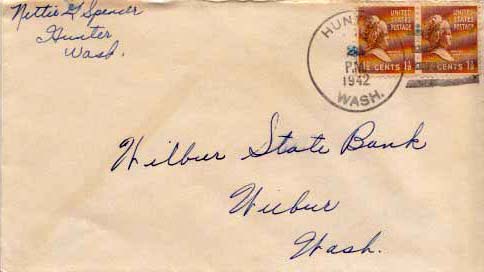 Nettie G Spencer
Hunter
Wash.
HUN
P.M.
1942
WASH.
UNITED STATES POSTAGE
1½ CENTS 1½
UNITED STATES POSTAGE
CENTS 1½
Wilbur State Bank
Wilbur
Wash.